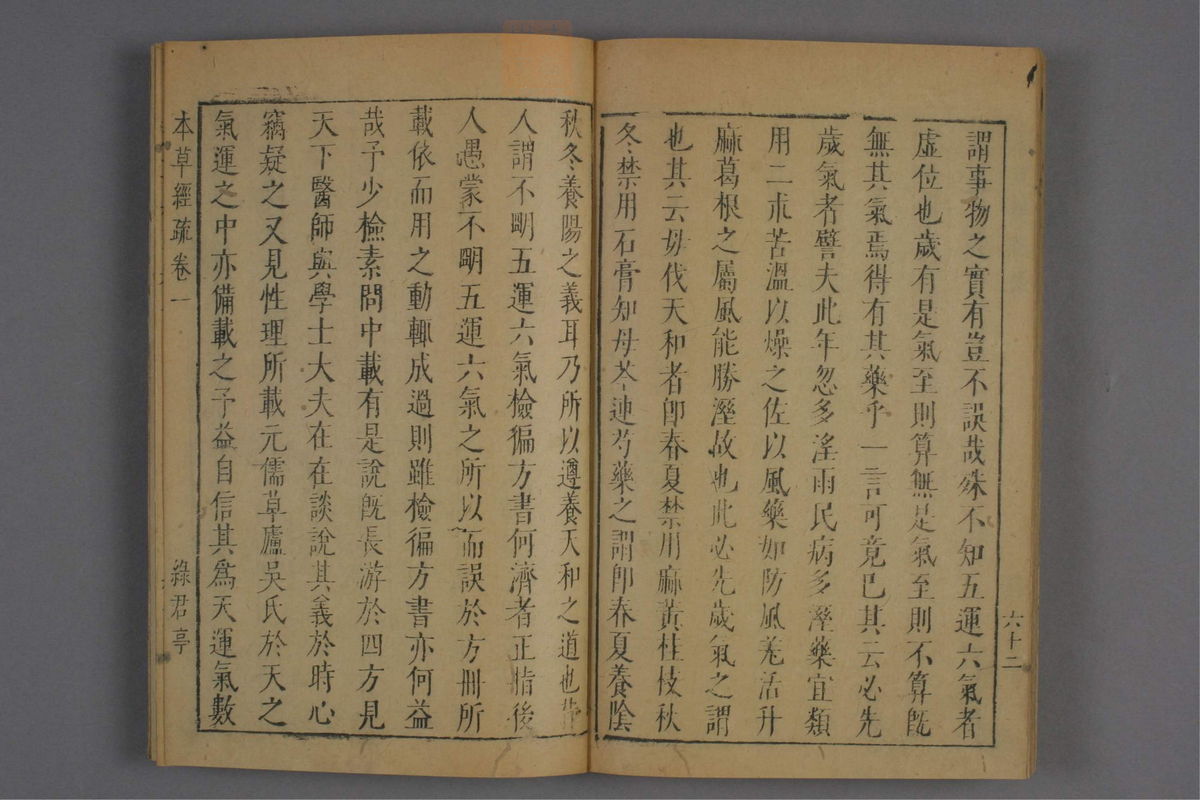 謂事物之實有豈不誤哉殊不知五運六氣者
虛位也歲有是氣至則算無是氣至則不算旣
無其氣焉得有其藥乎一言可竟已其云必先
歲氣者譬夫此年忽多淫雨民病多溼藥宜類
用二朮苦溫以燥之佐以風藥如防風羗活升
麻葛根之屬風能勝溼故也此必先歲氣之謂
也其云毋伐天和者卽春夏禁用麻黃桂枝秋
冬禁用石膏知母芩連芍藥之謂卽春夏養陰
六十二
秋冬養陽之義耳乃所以遵養天和之道也昔
人謂不明五運六氣檢徧方書何濟者正指後
人愚蒙不明五運六氣之所以而誤於方冊所
載依而用之動輒成過則雖檢徧方書亦何益
哉予少檢素問中載有是說旣長游於四方見
天下醫師與學士大夫在在談說其義於時心
竊疑之又見性理所載元儒草廬吳氏於天之
氣運之中亦備載之予益自信其爲天運氣數
本草經疏卷一
綠君亭